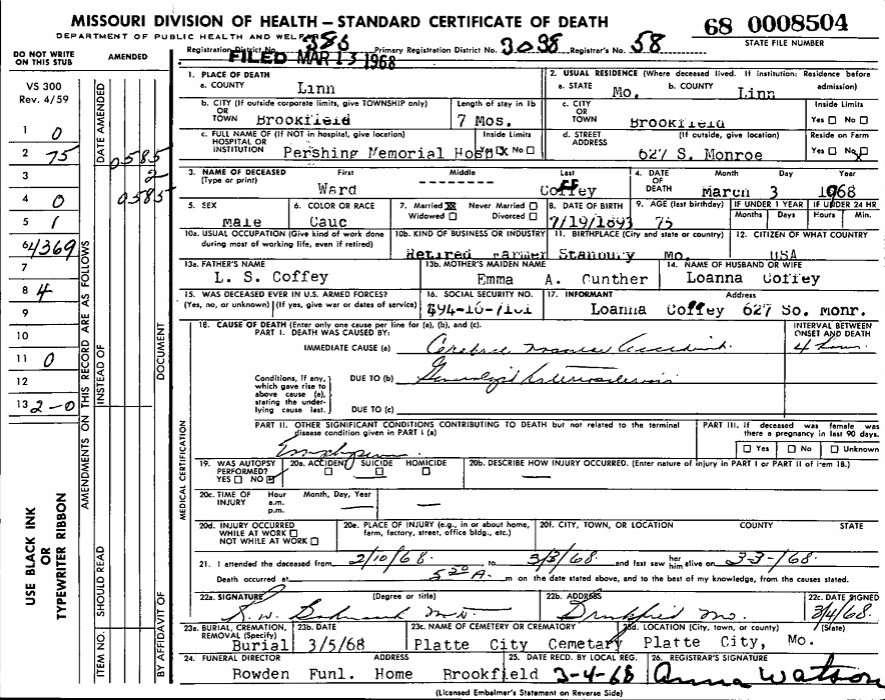 MISSOURI DIVISION OF HEALTH — STANDARD CERTIFICATE OF DEATH
68 0008504
DEPARTMENT OF PUBLIC HEALTH AND WELFARE
STATE FILE NUMBER
Registration District No. 385 Primary Registration District No. 3098 Registrar's No. 58
FILED MAR 13 1968
DO NOT WRITE
ON THIS STUB
AMENDED
VS 300
Rev. 4/59
1 0
2 75
3
4 0
5 1
6 4369
7
8 4
9
10
11 0
12
13 2-0
DATE AMENDED
0585
2
0585
AMENDMENTS ON THIS RECORD ARE AS FOLLOWS
INSTEAD OF
DOCUMENT
SHOULD READ
ITEM NO.
BY AFFIDAVIT OF
USE BLACK INK
OR
TYPEWRITER RIBBON
MEDICAL CERTIFICATION
1. PLACE OF DEATH
a. COUNTY Linn
2. USUAL RESIDENCE (Where deceased lived. If institution: Residence before admission)
a. STATE Mo. b. COUNTY Linn
b. CITY (If outside corporate limits, give TOWNSHIP only)
OR
TOWN Brookfield
Length of stay in 1b
7 Mos.
c. CITY
OR
TOWN Brookfield
Inside Limits
Yes No
c. FULL NAME OF (If NOT in hospital, give location)
HOSPITAL OR
INSTITUTION Pershing Memorial Hosp
Inside Limits
Yes X No
d. STREET
ADDRESS
(If outside, give location)
627 S. Monroe
Reside on Farm
Yes No X
3. NAME OF DECEASED
(Type or print)
First Middle Last
Ward -------- Coffey
4. DATE
OF
DEATH
Month Day Year
March 3 1968
5. SEX
Male
6. COLOR OR RACE
Cauc
7. Married X Never Married
Widowed Divorced
8. DATE OF BIRTH
7/19/1893
9. AGE (last birthday)
75
IF UNDER 1 YEAR
Months Days
IF UNDER 24 HR
Hours Min.
10a. USUAL OCCUPATION (Give kind of work done
during most of working life, even if retired)
10b. KIND OF BUSINESS OR INDUSTRY
Retired Farmer
11. BIRTHPLACE (City and state or country)
Mo.
12. CITIZEN OF WHAT COUNTRY
USA
13a. FATHER'S NAME
L. S. Coffey
13b. MOTHER'S MAIDEN NAME
Emma A. Gunther
14. NAME OF HUSBAND OR WIFE
Loanna Coffey
15. WAS DECEASED EVER IN U.S. ARMED FORCES?
(Yes, no, or unknown) (If yes, give war or dates of service)
16. SOCIAL SECURITY NO.
17. INFORMANT Address
Loanna Coffey 627 So. Monr.
18. CAUSE OF DEATH (Enter only one cause per line for (a), (b), and (c).
PART I. DEATH WAS CAUSED BY:
INTERVAL BETWEEN
ONSET AND DEATH
IMMEDIATE CAUSE (a) Cerebral Vascular Accident.
4 hours
Conditions, if any,
which gave rise to
above cause (a),
stating the under-
lying cause last.
DUE TO (b) Generalized Arteriosclerosis
DUE TO (c)
PART II. OTHER SIGNIFICANT CONDITIONS CONTRIBUTING TO DEATH but not related to the terminal
disease condition given in PART I (a)
Emphysema
PART III. If deceased was female was
there a pregnancy in last 90 days.
Yes No Unknown
19. WAS AUTOPSY
PERFORMED?
YES NO
20a. ACCIDENT SUICIDE HOMICIDE
20b. DESCRIBE HOW INJURY OCCURRED. (Enter nature of injury in PART I or PART II of item 18.)
20c. TIME OF
INJURY
Hour
a.m.
p.m.
Month, Day, Year
20d. INJURY OCCURRED
WHILE AT WORK
NOT WHILE AT WORK
20e. PLACE OF INJURY (e.g., in or about home,
farm, factory, street, office bldg., etc.)
20f. CITY, TOWN, OR LOCATION COUNTY STATE
21. I attended the deceased from 2/10/68. to 3/3/68. and last saw her him alive on 3-3-/68.
Death occurred at 5 20 A. m on the date stated above, and to the best of my knowledge, from the causes stated.
22a. SIGNATURE (Degree or title)
22b. ADDRESS
Brookfield Mo.
22c. DATE SIGNED
3/4/68.
23a. BURIAL, CREMATION,
REMOVAL (Specify)
Burial
23b. DATE
3/5/68
23c. NAME OF CEMETERY OR CREMATORY
Platte City Cemetary
23d. LOCATION (City, town, or county) (State)
Platte City, Mo.
24. FUNERAL DIRECTOR ADDRESS
Rowden Funl. Home Brookfield
25. DATE RECD. BY LOCAL REG.
3-4-68
26. REGISTRAR'S SIGNATURE
Anna Watson
(Licensed Embalmer's Statement on Reverse Side)